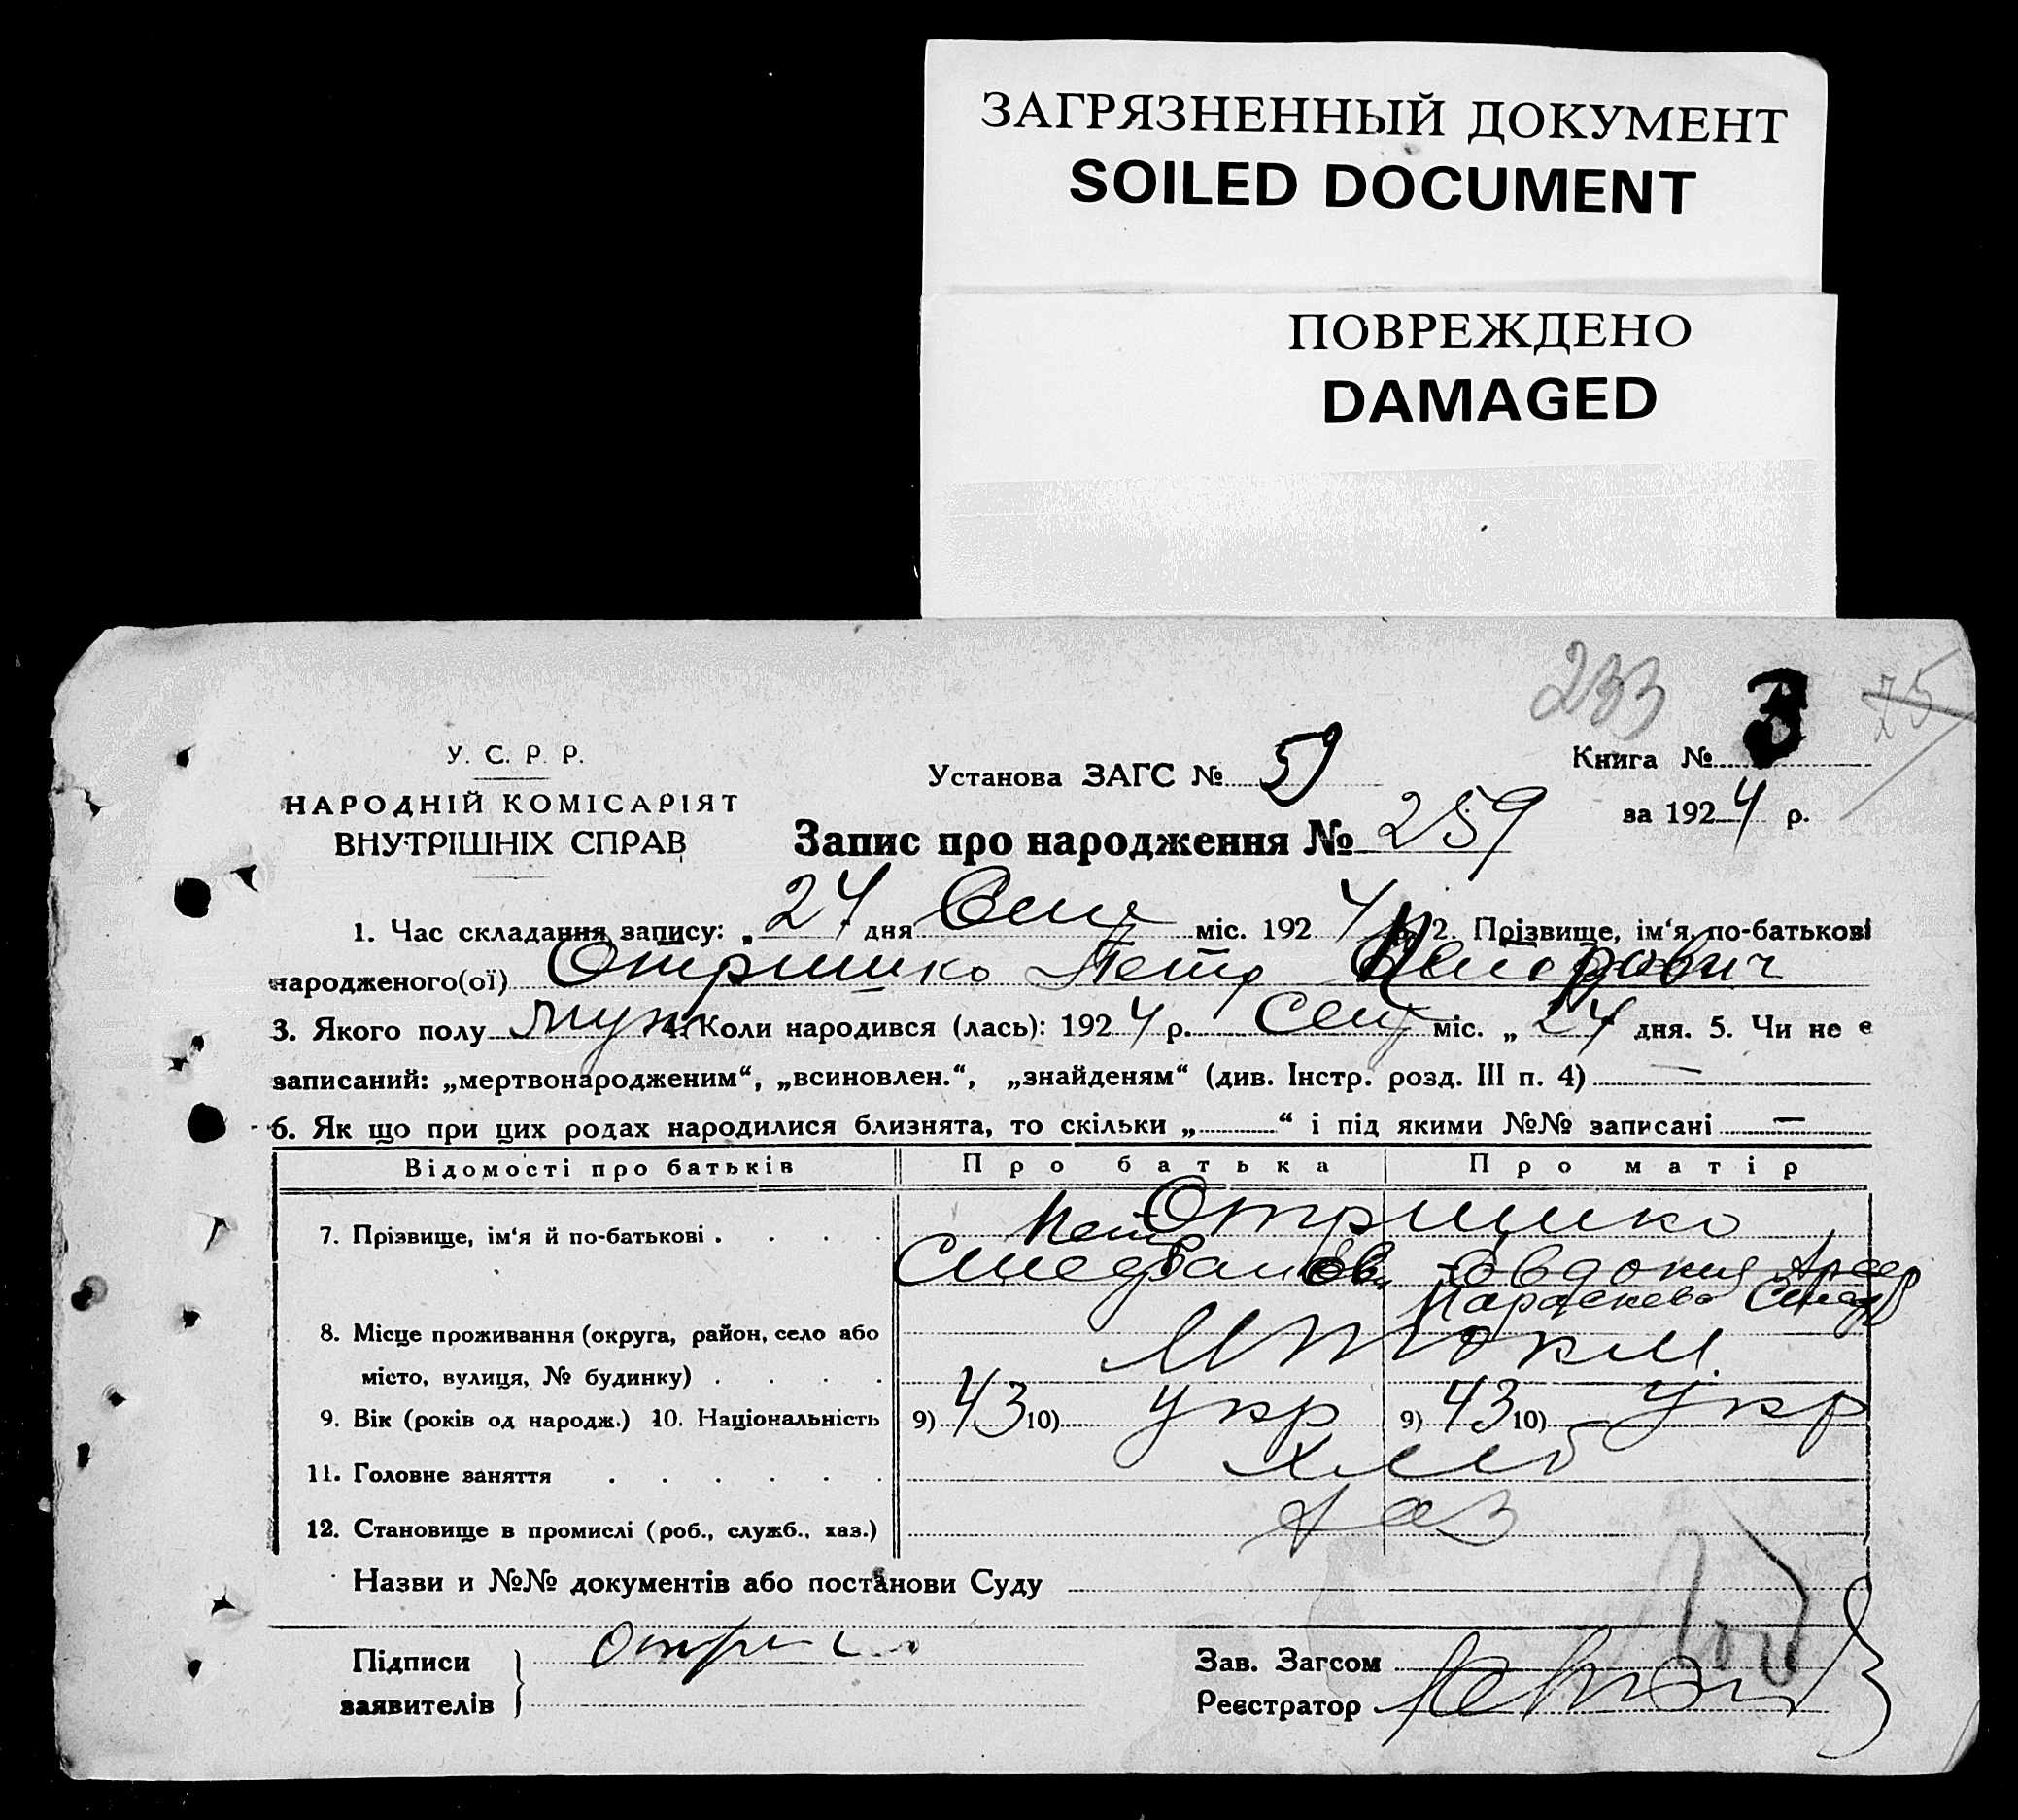 ЗАГРЯЗНЕННЫЙ ДОКУМЕНТ
SOILED DOCUMENT
ПОВРЕЖДЕНО
DAMAGED
233 3 75
У. С. Р. Р.
НАРОДНІЙ КОМІСАРІЯТ
ВНУТРІШНІХ СПРАВ
Установа ЗАГС № 59
Книга №
за 1924 р.
Запис про народження № 259
1. Час складання запису: „ 24 дня Сент міс. 1924 2. Прізвище, ім‘я, по-батькові
народженого(ої) Отришко Петр
3. Якого полу муж 4. Коли народився (лась): 1924 р. Сент міс. „ 24 дня. 5. Чи не є
записаний: „мертвонародженим“, „всиновлен.“, „знайденям“ (див. Інстр. розд. III п. 4) —
6. Як що при цих родах народилися близнята, то скільки „ “ і під якими №№ записані —
Відомості про батьків Про батька Про матір
7. Прізвище, ім‘я й по-батькові . . . . Отришко
Евдокия
Параскева
8. Місце проживання (округа, район, село або
місто, вулиця, № будинку) . . . .
9. Вік (років од народж.) 10. Національність 9) 43 10) Укр 9) 43 10) Укр
11. Головне заняття . . . . . . Хліб
12. Становище в промислі (роб., служб., хаз.) Хаз
Назви и №№ документів або постанови Суду
Підписи
заявителів
Зав. Загсом
Реєстратор